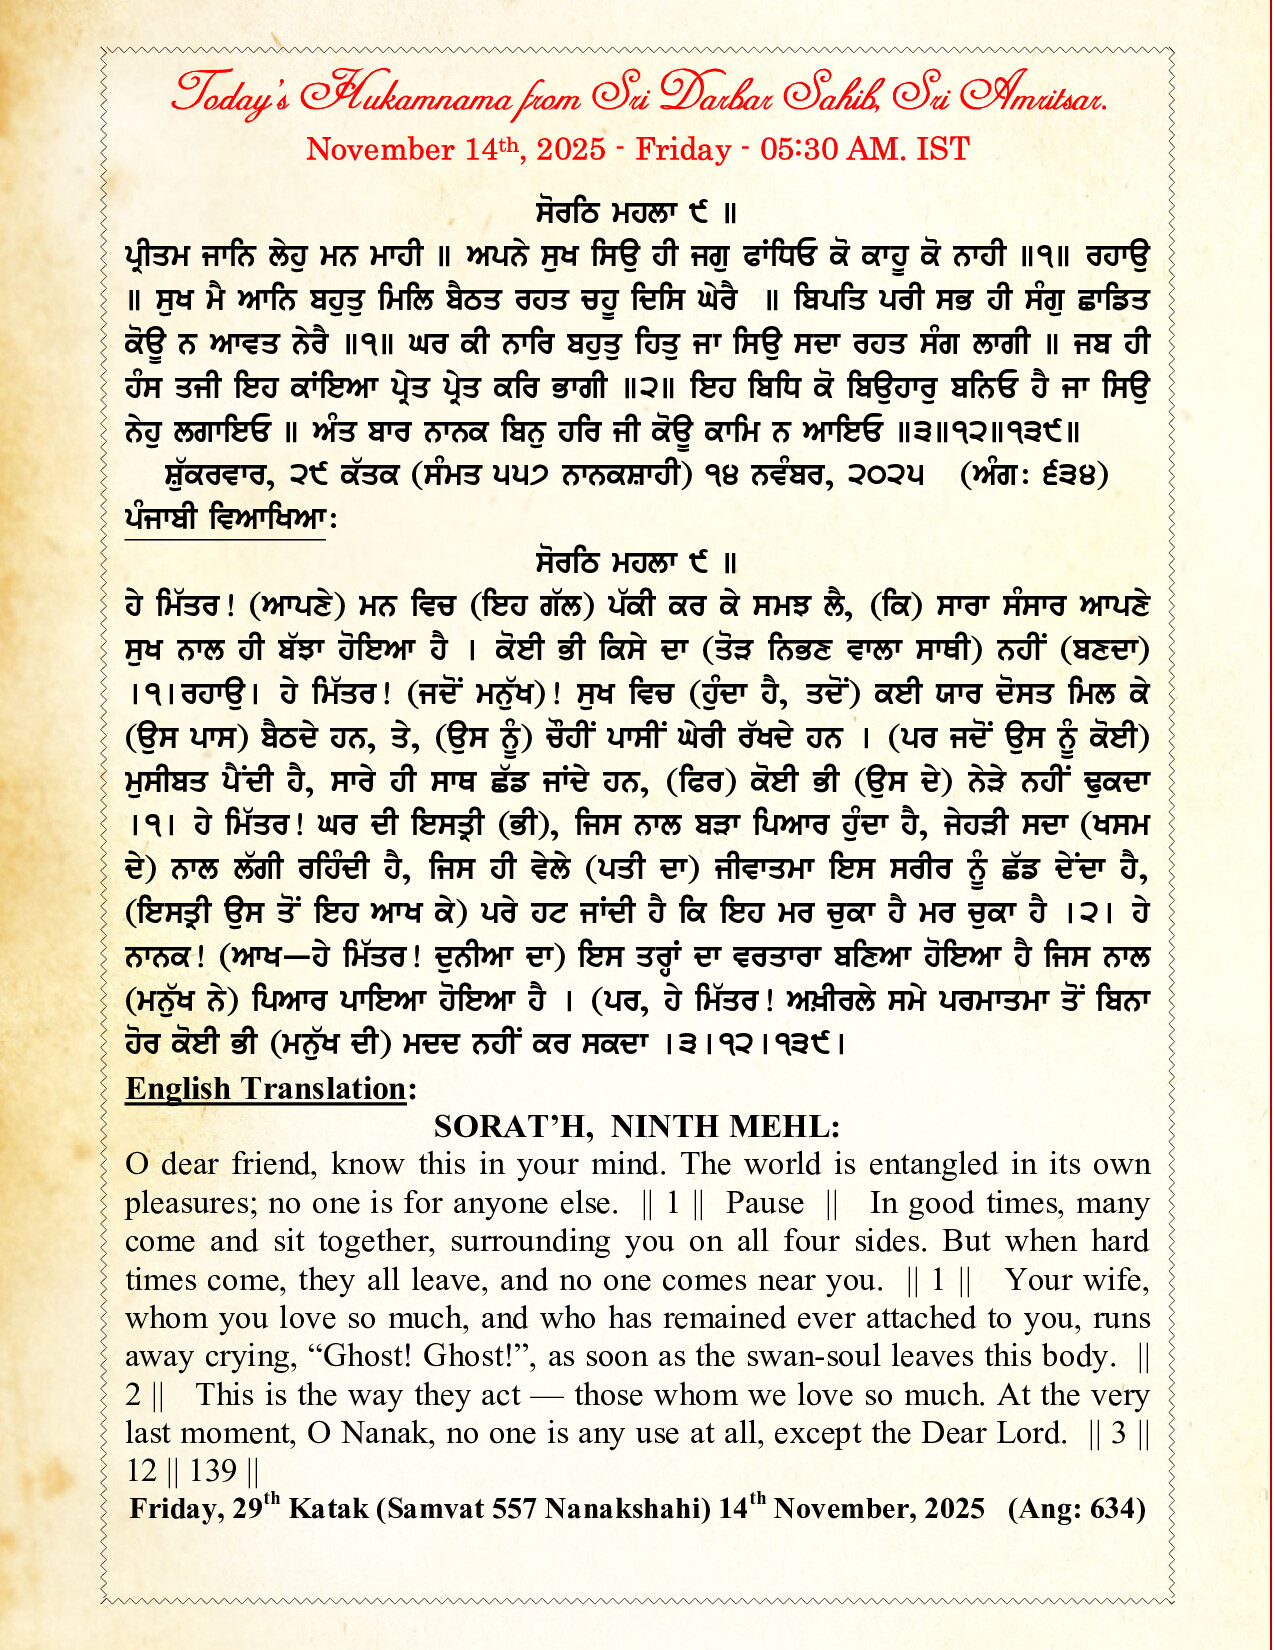 Today's Hukamnama from Sri Darbar Sahib, Sri Amritsar.
November 14th, 2025 - Friday - 05:30 AM. IST
ਸੋਰਠਿ ਮਹਲਾ ੯ ॥
ਪ੍ਰੀਤਮ ਜਾਨਿ ਲੇਹੁ ਮਨ ਮਾਹੀ ॥ ਅਪਨੇ ਸੁਖ ਸਿਉ ਹੀ ਜਗੁ ਫਾਂਧਿਓ ਕੋ ਕਾਹੂ ਕੋ ਨਾਹੀ ॥੧॥ ਰਹਾਉ
॥ ਸੁਖ ਮੈ ਆਨਿ ਬਹੁਤੁ ਮਿਲਿ ਬੈਠਤ ਰਹਤ ਚਹੂ ਦਿਸਿ ਘੇਰੈ ॥ ਬਿਪਤਿ ਪਰੀ ਸਭ ਹੀ ਸੰਗੁ ਛਾਡਿਤ
ਕੋਊ ਨ ਆਵਤ ਨੇਰੈ ॥੧॥ ਘਰ ਕੀ ਨਾਰਿ ਬਹੁਤੁ ਹਿਤੁ ਜਾ ਸਿਉ ਸਦਾ ਰਹਤ ਸੰਗ ਲਾਗੀ ॥ ਜਬ ਹੀ
ਹੰਸ ਤਜੀ ਇਹ ਕਾਂਇਆ ਪ੍ਰੇਤ ਪ੍ਰੇਤ ਕਰਿ ਭਾਗੀ ॥੨॥ ਇਹ ਬਿਧਿ ਕੋ ਬਿਉਹਾਰੁ ਬਨਿਓ ਹੈ ਜਾ ਸਿਉ
ਨੇਹੁ ਲਗਾਇਓ ॥ ਅੰਤ ਬਾਰ ਨਾਨਕ ਬਿਨੁ ਹਰਿ ਜੀ ਕੋਊ ਕਾਮਿ ਨ ਆਇਓ ॥੩॥੧੨॥੧੩੯॥
ਸ਼ੁੱਕਰਵਾਰ, ੨੯ ਕੱਤਕ (ਸੰਮਤ ੫੫੭ ਨਾਨਕਸ਼ਾਹੀ) ੧੪ ਨਵੰਬਰ, ੨੦੨੫ (ਅੰਗ: ੬੩੪)
ਪੰਜਾਬੀ ਵਿਆਖਿਆ:
ਸੋਰਠਿ ਮਹਲਾ ੯ ॥
ਹੇ ਮਿੱਤਰ! (ਆਪਣੇ) ਮਨ ਵਿਚ (ਇਹ ਗੱਲ) ਪੱਕੀ ਕਰ ਕੇ ਸਮਝ ਲੈ, (ਕਿ) ਸਾਰਾ ਸੰਸਾਰ ਆਪਣੇ
ਸੁਖ ਨਾਲ ਹੀ ਬੱਝਾ ਹੋਇਆ ਹੈ । ਕੋਈ ਭੀ ਕਿਸੇ ਦਾ (ਤੋੜ ਨਿਭਣ ਵਾਲਾ ਸਾਥੀ) ਨਹੀਂ (ਬਣਦਾ)
।੧।ਰਹਾਉ। ਹੇ ਮਿੱਤਰ! (ਜਦੋਂ ਮਨੁੱਖ)! ਸੁਖ ਵਿਚ (ਹੁੰਦਾ ਹੈ, ਤਦੋਂ) ਕਈ ਯਾਰ ਦੋਸਤ ਮਿਲ ਕੇ
(ਉਸ ਪਾਸ) ਬੈਠਦੇ ਹਨ, ਤੇ, (ਉਸ ਨੂੰ) ਚੌਹੀਂ ਪਾਸੀਂ ਘੇਰੀ ਰੱਖਦੇ ਹਨ । (ਪਰ ਜਦੋਂ ਉਸ ਨੂੰ ਕੋਈ)
ਮੁਸੀਬਤ ਪੈਂਦੀ ਹੈ, ਸਾਰੇ ਹੀ ਸਾਥ ਛੱਡ ਜਾਂਦੇ ਹਨ, (ਫਿਰ) ਕੋਈ ਭੀ (ਉਸ ਦੇ) ਨੇੜੇ ਨਹੀਂ ਢੁਕਦਾ
।੧। ਹੇ ਮਿੱਤਰ! ਘਰ ਦੀ ਇਸਤ੍ਰੀ (ਭੀ), ਜਿਸ ਨਾਲ ਬੜਾ ਪਿਆਰ ਹੁੰਦਾ ਹੈ, ਜੇਹੜੀ ਸਦਾ (ਖਸਮ
ਦੇ) ਨਾਲ ਲੱਗੀ ਰਹਿੰਦੀ ਹੈ, ਜਿਸ ਹੀ ਵੇਲੇ (ਪਤੀ ਦਾ) ਜੀਵਾਤਮਾ ਇਸ ਸਰੀਰ ਨੂੰ ਛੱਡ ਦੇਂਦਾ ਹੈ,
(ਇਸਤ੍ਰੀ ਉਸ ਤੋਂ ਇਹ ਆਖ ਕੇ) ਪਰੇ ਹਟ ਜਾਂਦੀ ਹੈ ਕਿ ਇਹ ਮਰ ਚੁਕਾ ਹੈ ਮਰ ਚੁਕਾ ਹੈ ।੨। ਹੇ
ਨਾਨਕ! (ਆਖ—ਹੇ ਮਿੱਤਰ! ਦੁਨੀਆ ਦਾ) ਇਸ ਤਰ੍ਹਾਂ ਦਾ ਵਰਤਾਰਾ ਬਣਿਆ ਹੋਇਆ ਹੈ ਜਿਸ ਨਾਲ
(ਮਨੁੱਖ ਨੇ) ਪਿਆਰ ਪਾਇਆ ਹੋਇਆ ਹੈ । (ਪਰ, ਹੇ ਮਿੱਤਰ! ਅਖ਼ੀਰਲੇ ਸਮੇ ਪਰਮਾਤਮਾ ਤੋਂ ਬਿਨਾ
ਹੋਰ ਕੋਈ ਭੀ (ਮਨੁੱਖ ਦੀ) ਮਦਦ ਨਹੀਂ ਕਰ ਸਕਦਾ ।੩।੧੨।੧੩੯।
English Translation:
SORAT'H, NINTH MEHL:
O dear friend, know this in your mind. The world is entangled in its own
pleasures; no one is for anyone else. || 1 || Pause || In good times, many
come and sit together, surrounding you on all four sides. But when hard
times come, they all leave, and no one comes near you. || 1 || Your wife,
whom you love so much, and who has remained ever attached to you, runs
away crying, “Ghost! Ghost!”, as soon as the swan-soul leaves this body. ||
2 || This is the way they act — those whom we love so much. At the very
last moment, O Nanak, no one is any use at all, except the Dear Lord. || 3 ||
12 || 139 ||
Friday, 29th Katak (Samvat 557 Nanakshahi) 14th November, 2025 (Ang: 634)